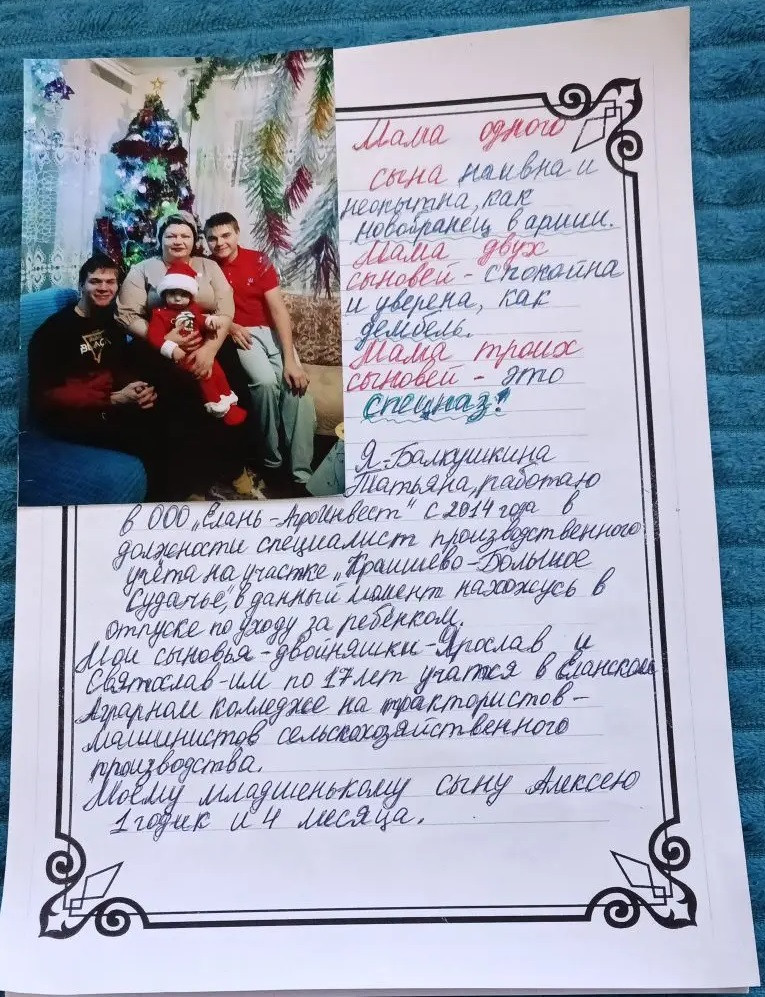 Мама одного
сына наивна и
неопытна, как
новобранец в армии.
Мама двух
сыновей - спокойна
и уверена, как
дембель.
Мама троих
сыновей - это
спецназ!
Я - Балкушкина
Татьяна, работаю
в ООО „Елань-АгроИнвест" с 2014 года в
должности специалист производственного
учёта на участке „Краишево-Большое
Судачье", в данный момент нахожусь в
отпуске по уходу за ребёнком.
Мои сыновья - двойняшки - Ярослав и
Святослав - им по 17 лет учатся в Еланском
Аграрном колледже на трактористов -
машинистов сельскохозяйственного
производства.
Моему младшенькому сыну Алексею
1 годик и 4 месяца.